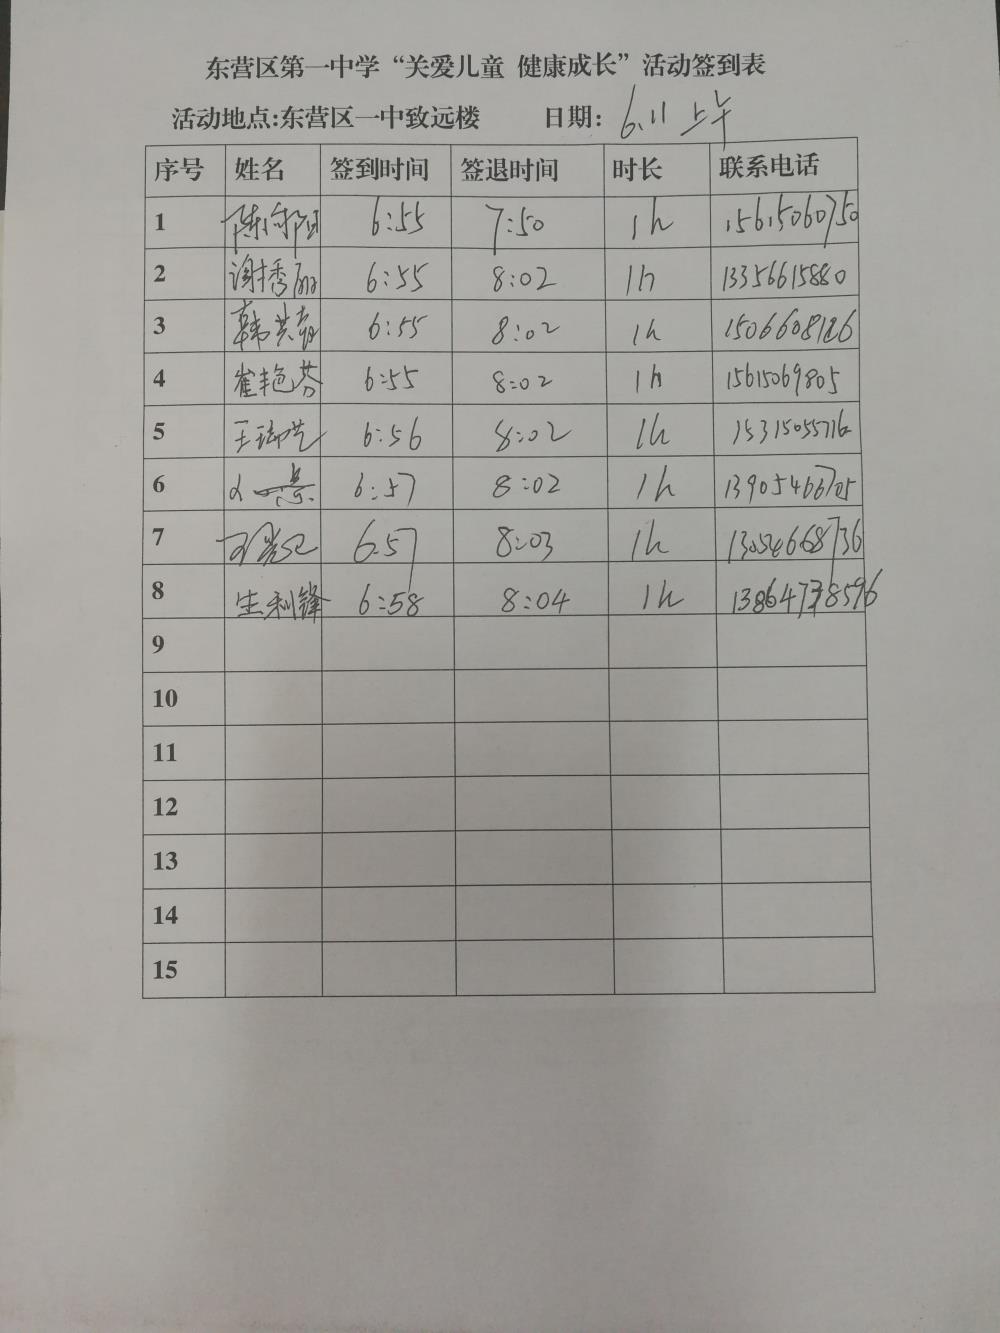 东营区第一中学“关爱儿童 健康成长”活动签到表
活动地点:东营区一中致远楼 日期: 6.11 上午
序号 姓名 签到时间 签退时间 时长 联系电话
1 陈向阳 6:55 7:50 1h 15615060750
2 谢秀丽 6:55 8:02 1h 13356615880
3 韩其 6:55 8:02 1h 15066608126
4 崔艳芬 6:55 8:02 1h 15615069805
5 王 6:56 8:02 1h 15315055716
6 6:57 8:02 1h 13905466705
7 6:57 8:03 1h 13054668736
8 生利锋 6:58 8:04 1h
9
10
11
12
13
14
15